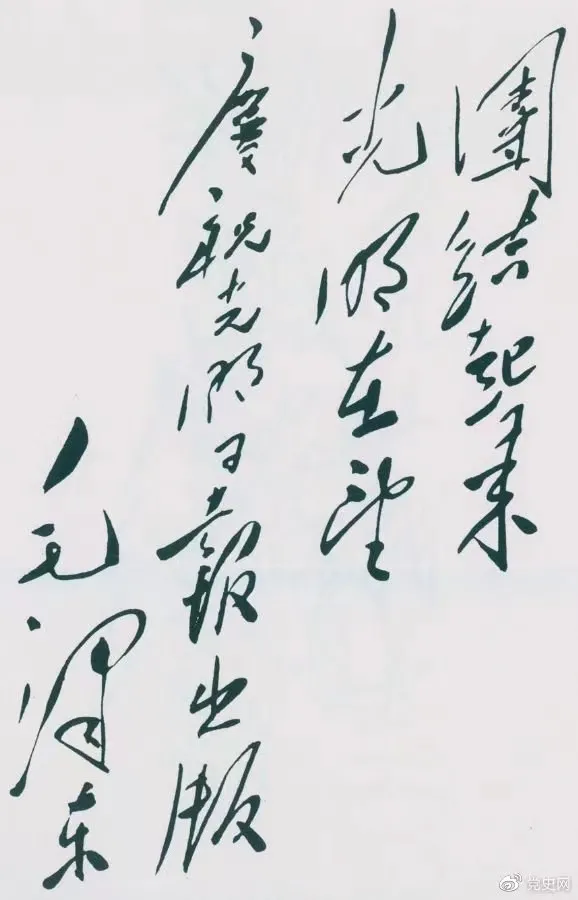 團結起來
光明在望
慶祝光明日報出版
毛澤東
党史网